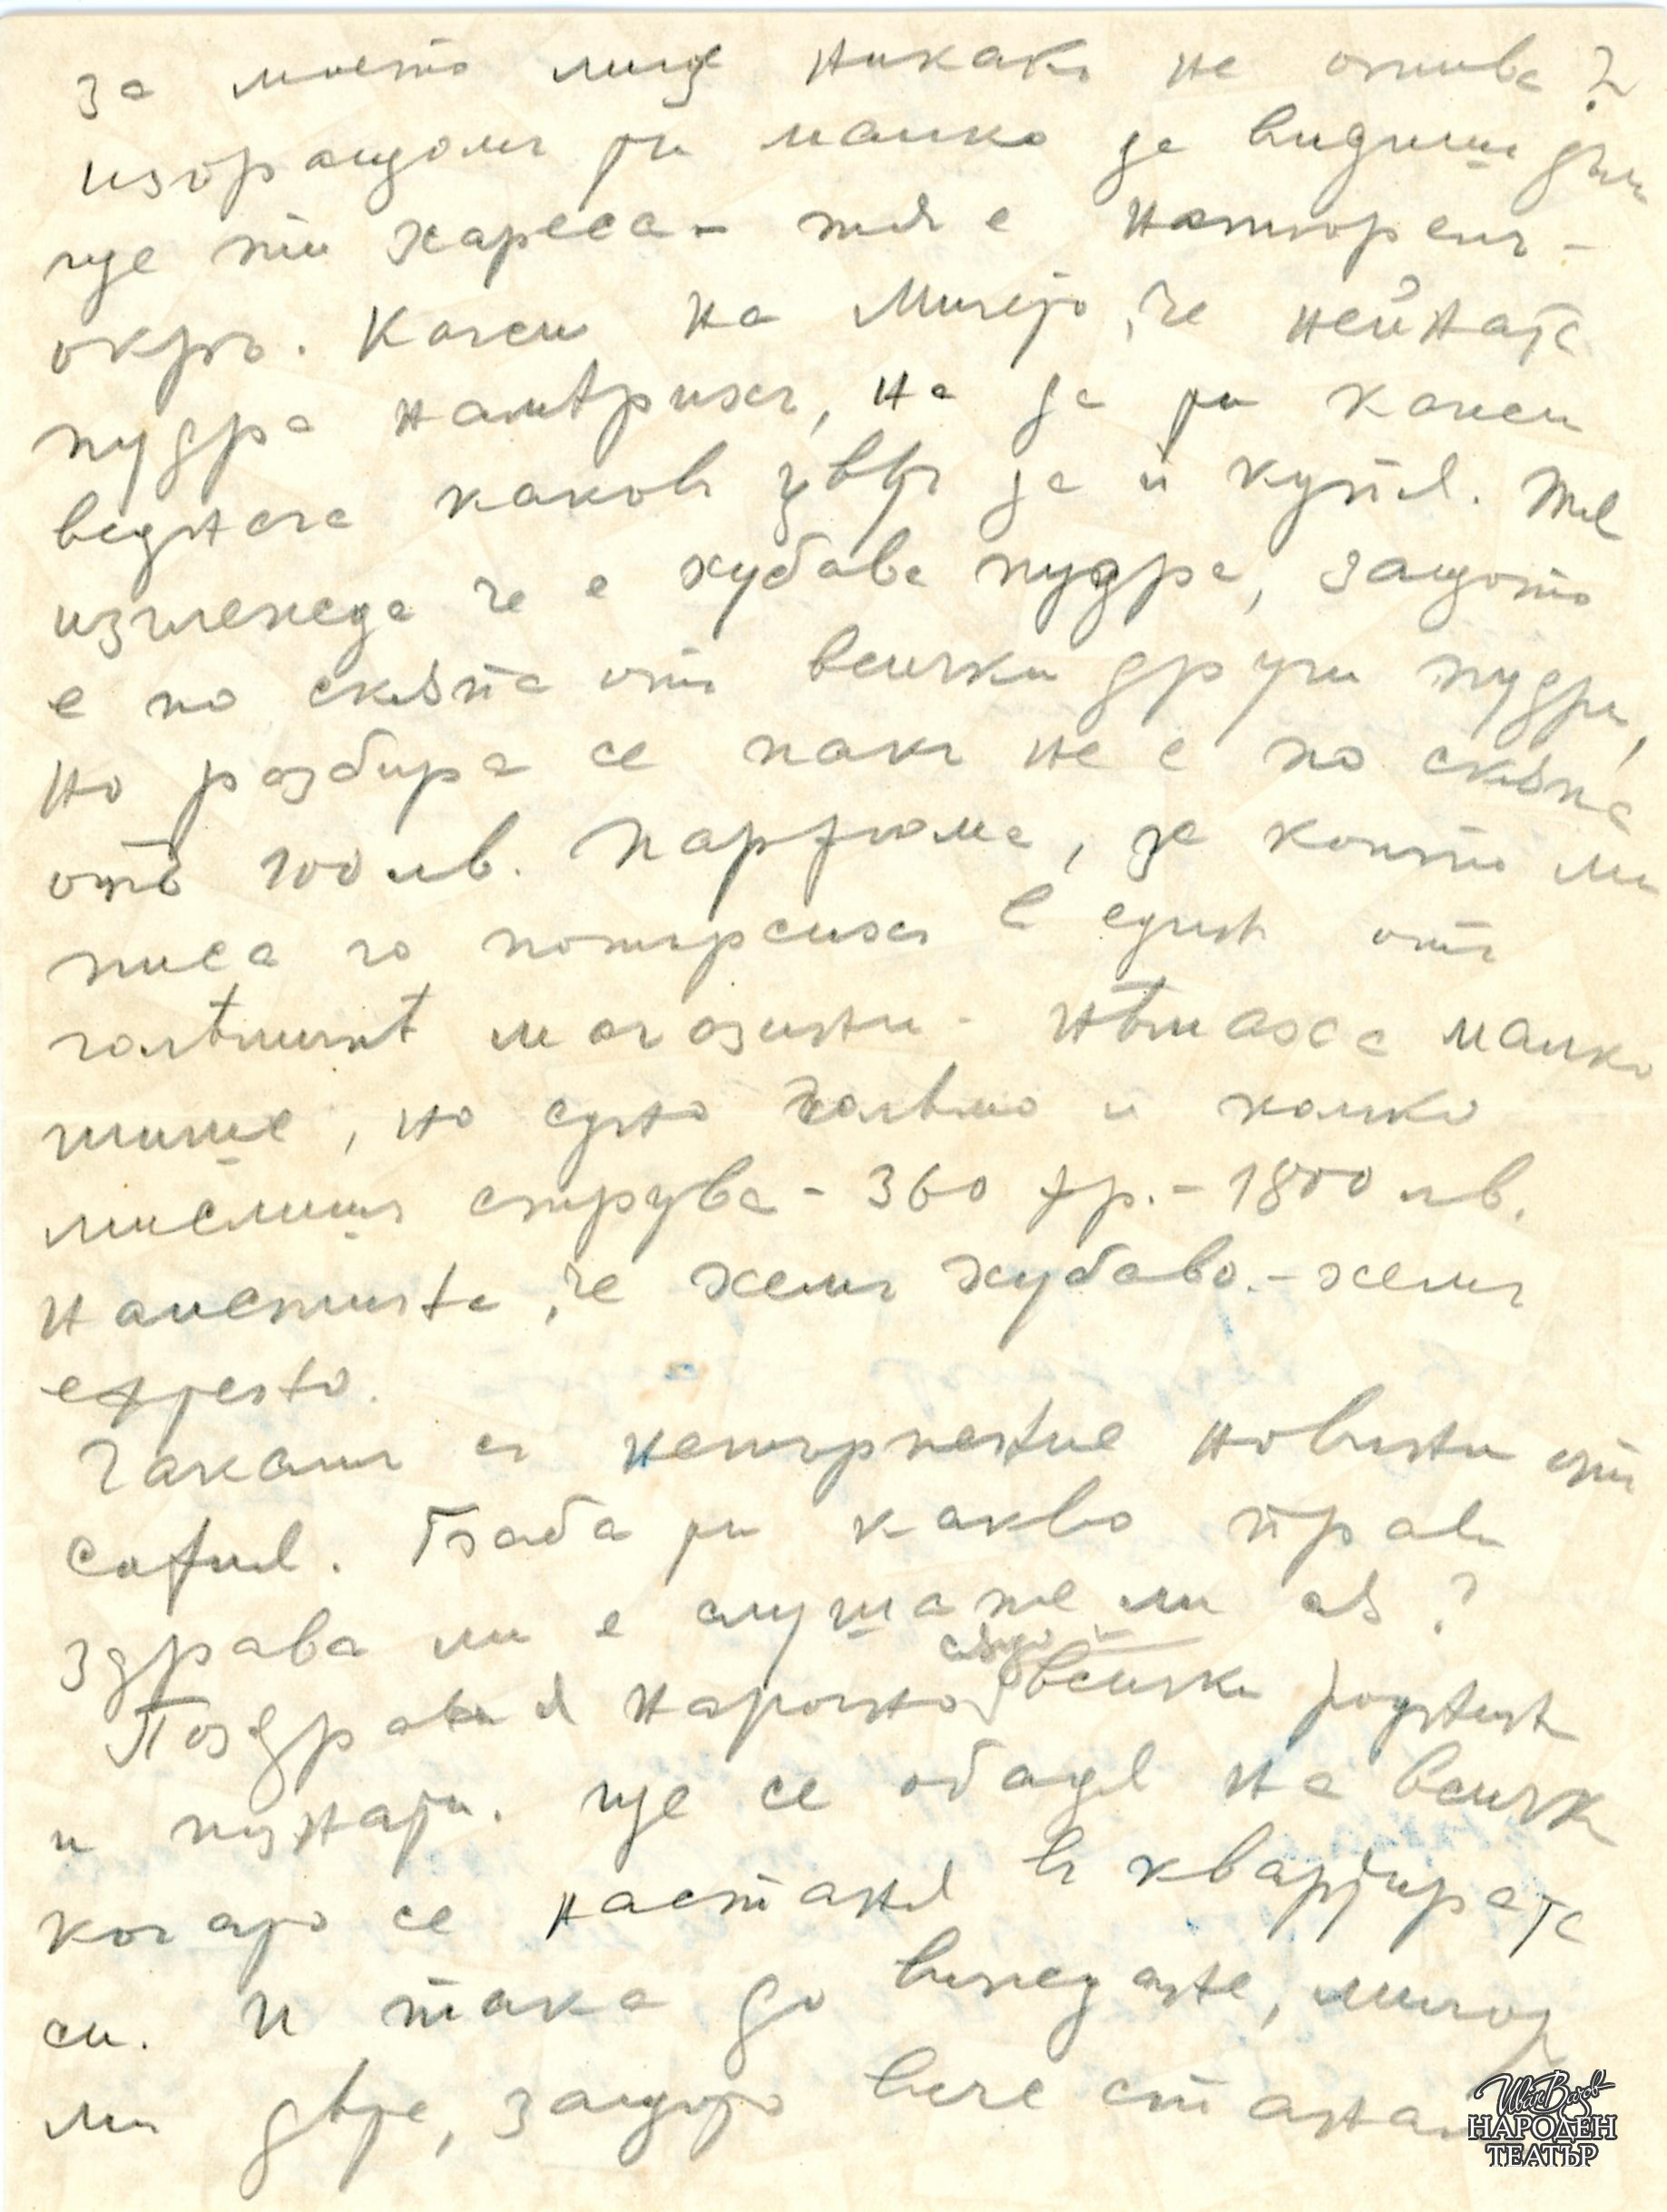 за моето лице никакъ не отива?
изпращамъ ти малко да видишъ дали
ще ти хареса - тя е натюрелъ -
окръ. Кажи на Милето, че нейната
пудра намѣрихъ, но да ти каже
веднага какъвъ цвѣтъ да ѝ купя. Тя
изглежда че е хубава пудра, защото
е по скъпа отъ всички други пудри,
но разбира се пакъ не е по скъпа
отъ 100 лв. Парфюма, за който ми
писа го потърсихъ в единъ отъ
голѣмитѣ магазини - нѣмаха малко
шише, но едно голѣмо и колко
мислишъ струва - 360 фр. - 1800 лв.
Наистина, че хемъ хубаво - хемъ
ефтено.
Чакамъ съ нетърпение новини отъ
София. Баба ти какво прави
здрава ли е слушате ли я?
Поздрави я нарочно също всички роднини
и познати. Ще се обадя на всички
когато се настаня въ квартирата
си. И така до виждане, мило
ми дѣте, защото вече стана
Иван Вазов
НАРОДЕН
ТЕАТЪР